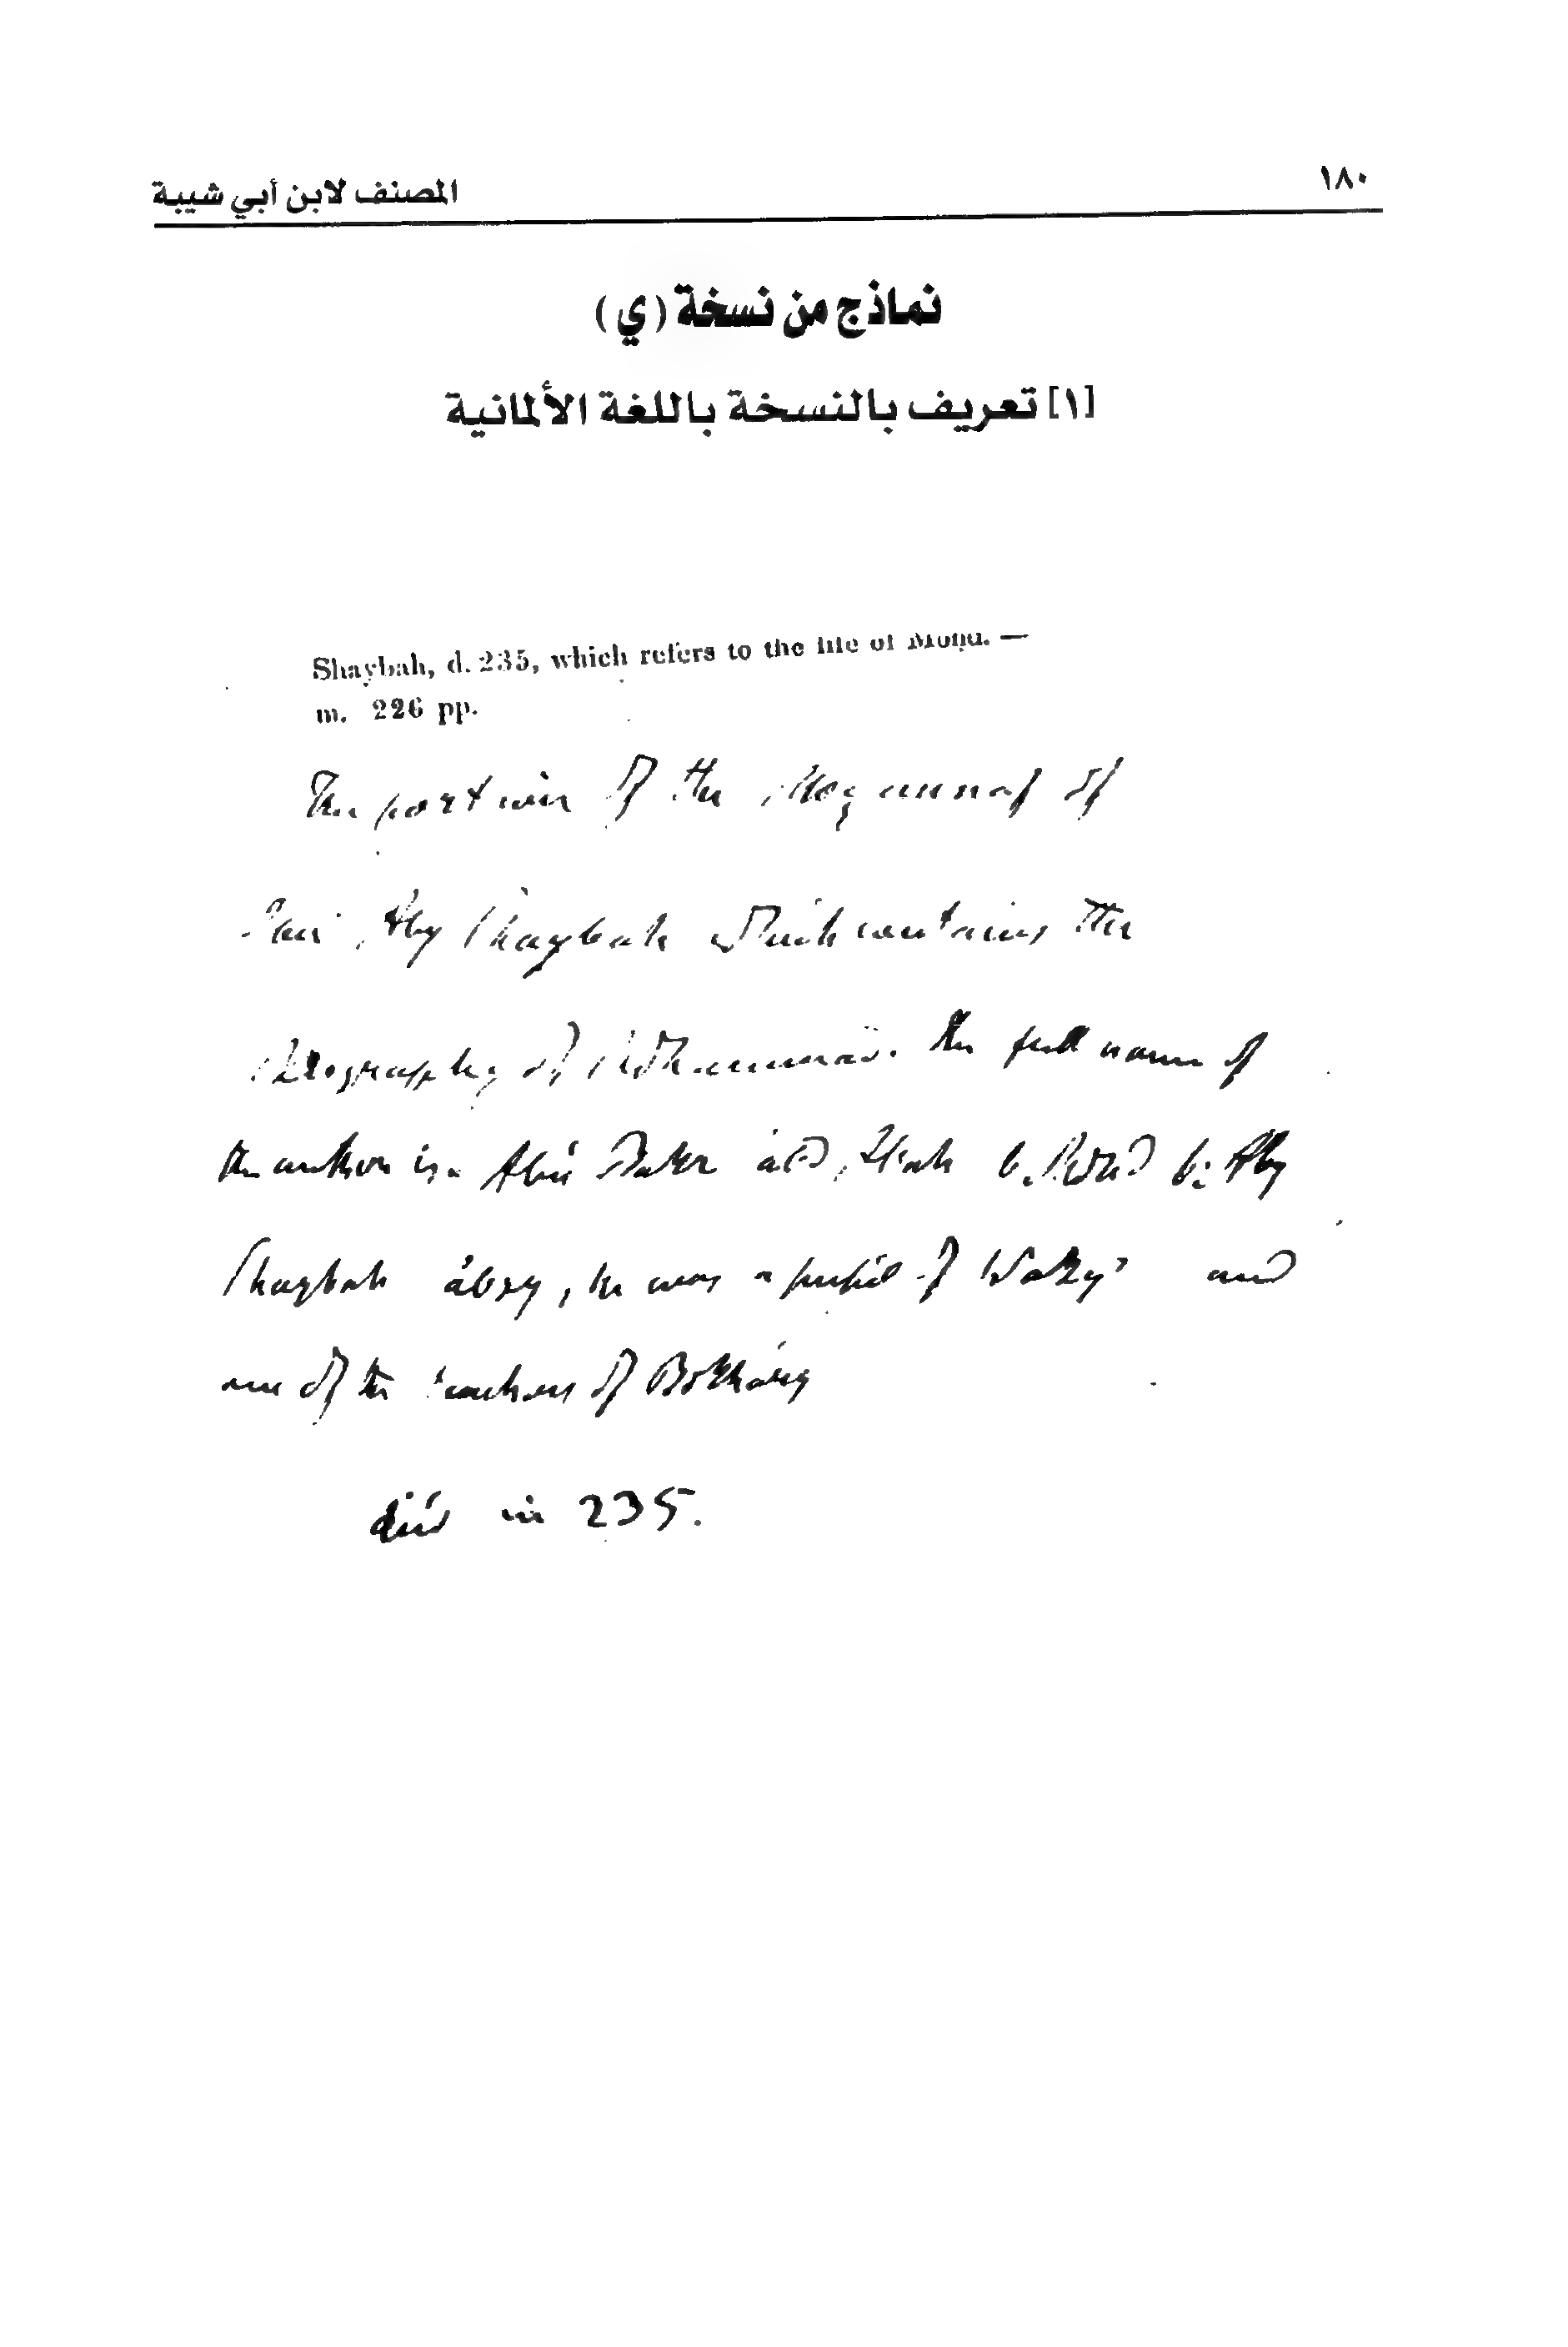 المصنف لابن أبي شيبة
١٨٠
نماذج من نسخة (ي)
[١] تعريف بالنسخة باللغة الألمانية
Shaybah, d. 235, which refers to the life of Moḥd. —
m. 226 pp.
The portion of the Moçannaf of
Aby Shaybah which contains the
Biography of Mohammad. The full name of
the author is Abú Bakr b. Moḥd b. Aby
Shaybah 'absy, he was a pupil of Waky' and
one of the teachers of Bokháry
died in 235.